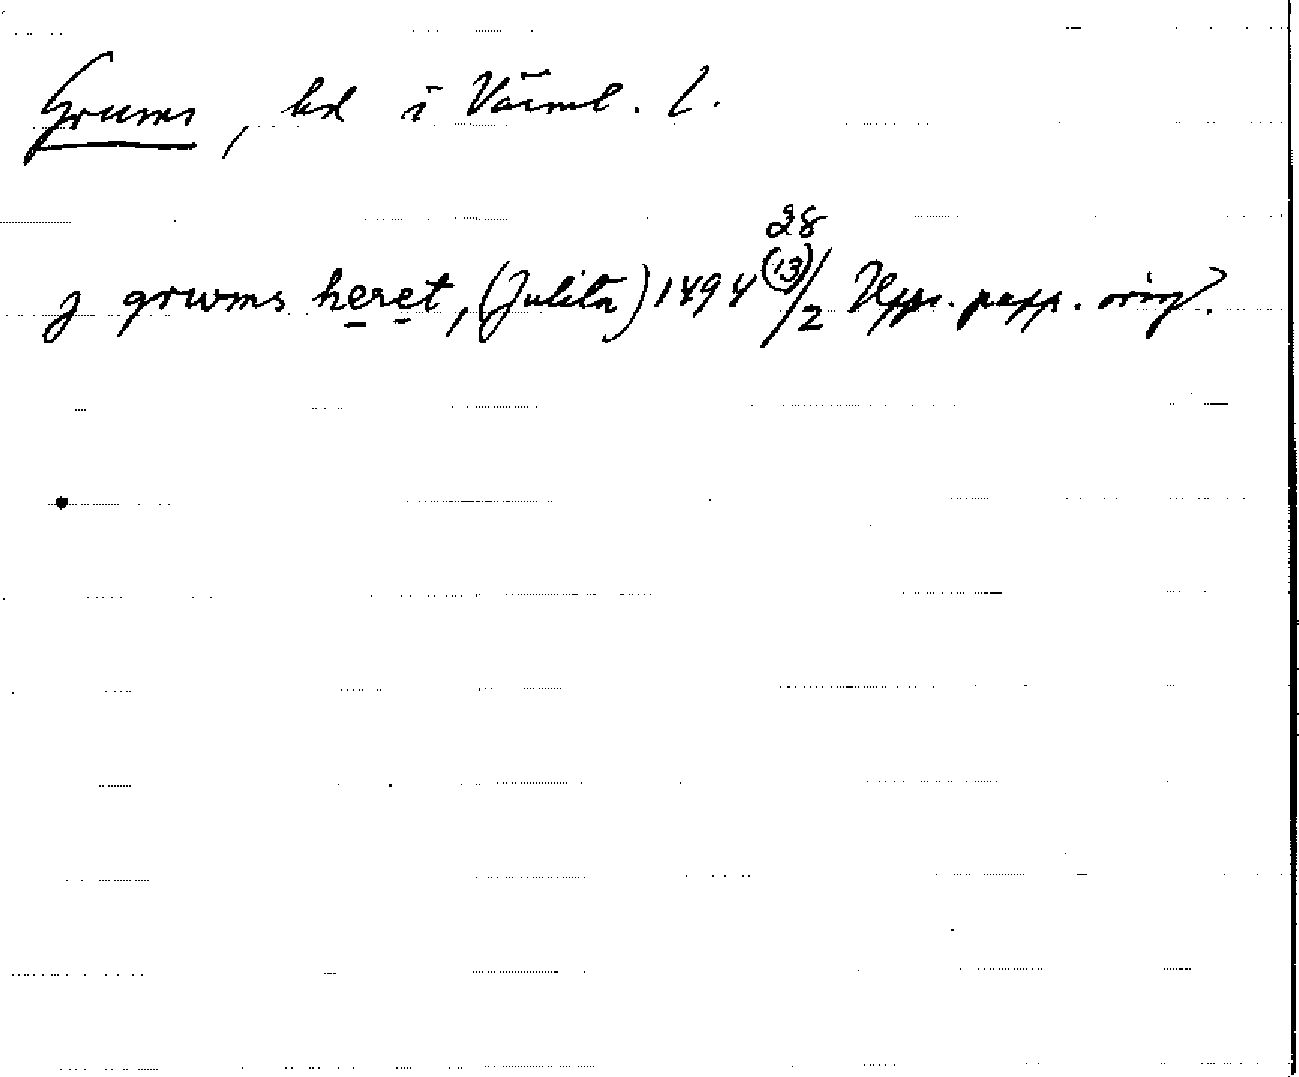 Grums, hd i Värml. l.
28
j grwms heret, (Julita) 1494 (13)/2 papp. orig.